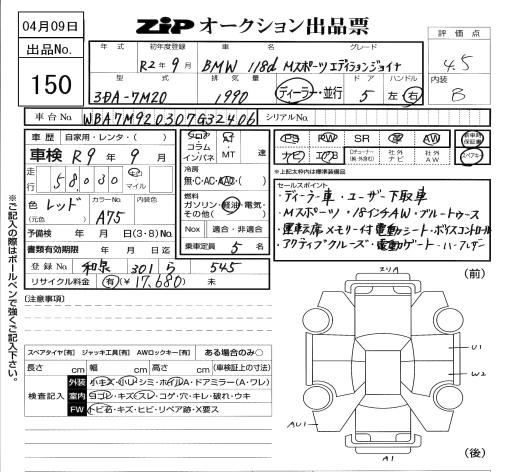 04月09日
ZIP オークション出品票
出品No.
150
評価点
4.5
内装
B
年式 初年度登録 車名 グレード
R2年9月 BMW 118d Mスポーツエディションジョイ+
型式 排気量 ドア ハンドル
3DA-7M20 1990 ディーラー・並行 5 左 右
車台No. WBA7M920307G32406 シリアルNo.
車歴 自家用・レンタ・( )
車検 R9年9月
走行 58,030 マイル
色 レッド カラーNo. A75 内装色
(元色)
予備検 年 月 日(3・8)No.
書類有効期限 年 月 日迄
登録No. 和泉 301 ら 545
リサイクル料金 有(¥17,680) 未
コラム
インパネ
AT
・MT 速
冷房
無・C・AC・AAC・( )
燃料
ガソリン・軽油・電気・
その他( )
Nox 適合・非適合
乗車定員 5 名
PS PW SR 革 AW
ナビ エアB
社外ナビ 社外AW
※上記太枠内は標準装備品
セールスポイント
・ディーラー車・ユーザー下取車
・Mスポーツ・18インチAW・ブルートゥース
・運転席メモリー付電動シート・ボイスコントロール
・アクティブクルーズ・電動ゲート・ハーフレザー
※ご記入の際はボールペンで強くご記入下さい。
(注意事項)
スペアタイヤ[有] ジャッキ工具[有] AWロックキー[有] ある場合のみ○
長さ cm 幅 cm 高さ cm (車検証上の寸法)
検査記入
外装 小キズ・小凹・シミ・ホイルA・ドアミラー(A・ワレ)
室内 ヨゴレ・キズ・スレ・コゲ・穴・キレ・破れ・ウキ
FW トビ石・キズ・ヒビ・リペア跡・X要ス
(前)
U1
W2
AU1
A1
(後)